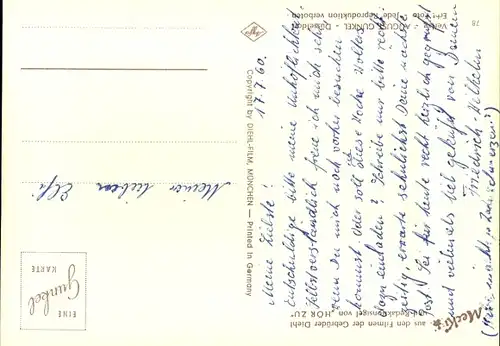 17.7.60.
Meine Liebste!
Entschuldige bitte meine Unhöflichkeit.
Selbstverständlich freue ich mich sehr
wenn Du mich noch vorher besuchen
kommst. Oder soll ich diese Woche Wolters
einladen? Schreibe mir bitte recht-
zeitig erwarte sehnlichst Deine nächste
Post. Sei für heute recht herzlich gegrüßt
und vielemals lieb geküßt von Deinem
Friedrich-Wilhelm
Meiner lieben Elfi
Mecki
aus den Filmen der Gebrüder Diehl
Redaktionsigel von „HÖR ZU“
Copyright by DIEHL-FILM, MÜNCHEN — Printed in Germany
Agfa
Verlag AUGUST GUNKEL - Düsseldorf
Echt Foto Jede Reproduktion verboten
78
EINE
Gunkel
KARTE